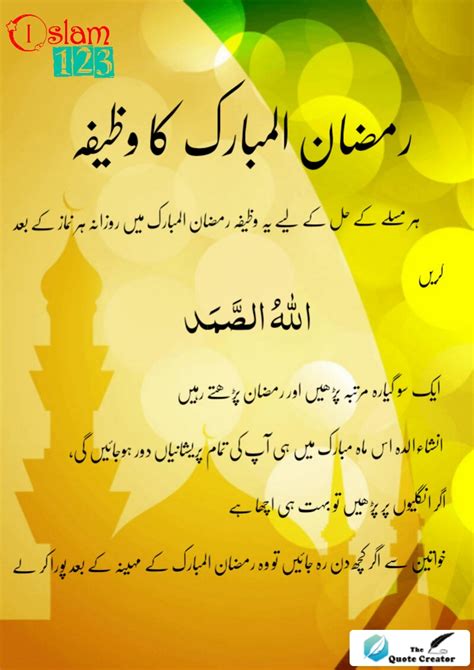 Islam
123
رمضان المبارک کا وظیفہ
ہر مسلے کے حل کے لیے یہ وظیفہ رمضان المبارک میں روزانہ ہر نماز کے بعد
کریں
اللهُ الصَّمَد
ایک سو گیارہ مرتبہ پڑھیں اور رمضان پڑھتے رہیں
انشاءالله اس ماہ مبارک میں ہی آپ کی تمام پریشانیاں دور ہوجائیں گی،
اگر انگلیوں پر پڑھیں تو بہت ہی اچھا ہے
خواتین سے اگر کچھ دن رہ جائیں تو وہ رمضان المبارک کے مہینہ کے بعد پورا کر لے
The
Quote Creator